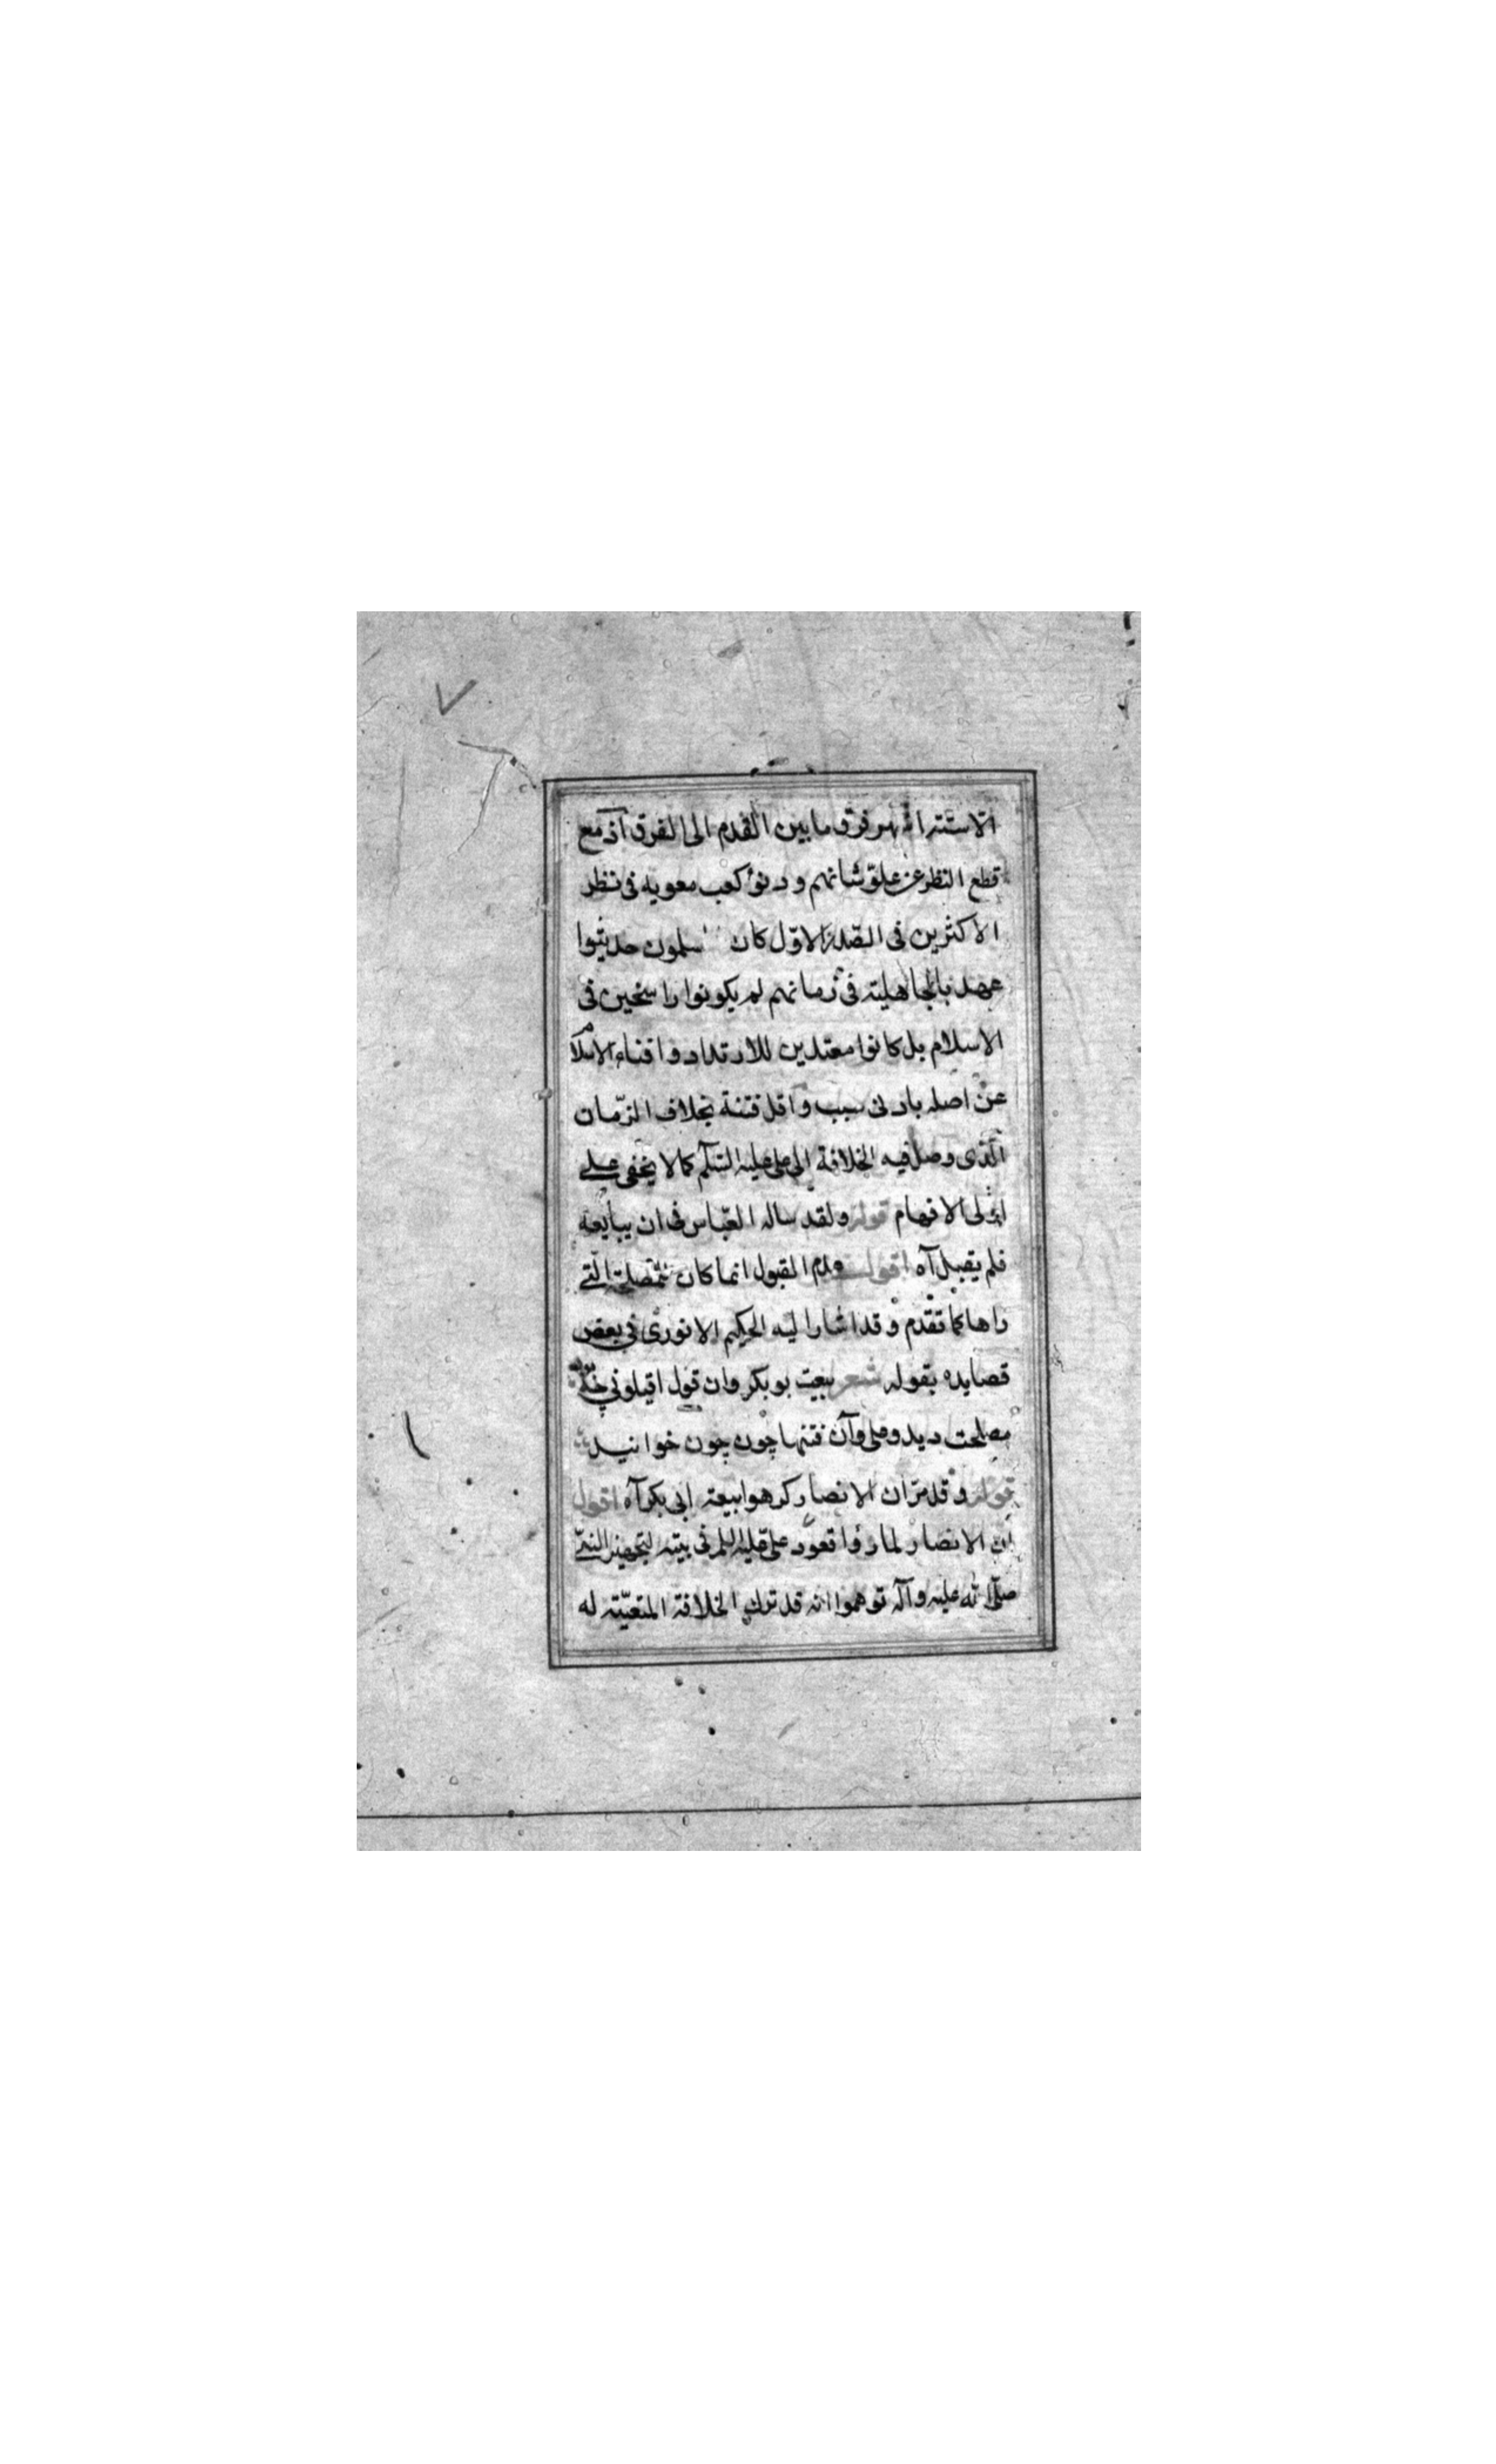 الاستتر انه هو فرق ما بين القدم الى الفرق اذ مع
قطع النظر عن علوّ شانهم و دنوّ كعب معويه فى نظر
الاكثرين فى الصّدر الاوّل كان سلمون حديثوا
عهد بالجاهلية فى زمانهم لم يكونوا راسخين فى
الاسلام بل كانوا معتدين للارتداد و افناء الاسلام
عن اصله بادنى سبب و اقل فتنة بخلاف الزّمان
الّذى وصل فيه الخلافة الى على عليه السّلم كما لا يخفى على
اولى الافهام قوله ولقد ساله العبّاس فى ان يبايعه
فلم يقبل آه اقول عدم القبول انما كان للمصلحة الّتى
راها كما تقدم و قد اشار اليه الحكيم الانورى فى بعض
قصايده بقوله شعر بيعت بو بكر وان قول اقيلونى
مصلحت ديد و على وآن فتنها چون چون خوانيد
قوله و قد مرّ ان الانصار كرهوا بيعة ابى بكر آه اقول
ان الانصار لما رؤا قعود على عليه السلم فى بيته لتجهيز النبىّ
صلّى الله عليه و آله توهموا انه قد ترك الخلافة المتعيّنة له